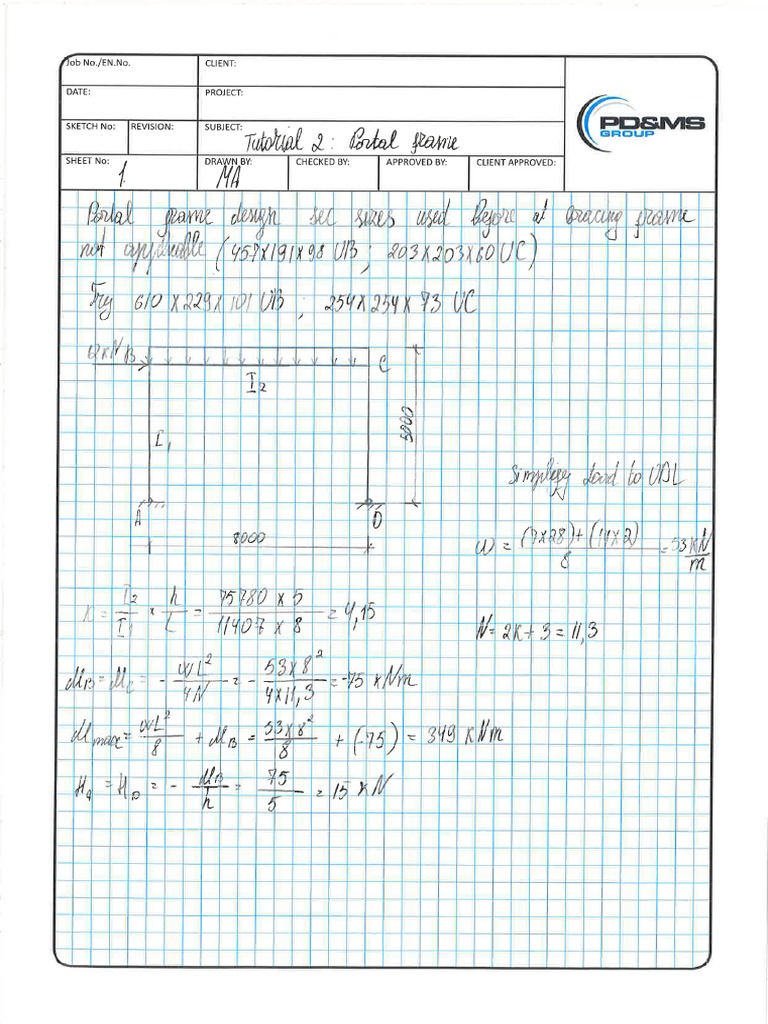 Job No./EN.No.
CLIENT:
DATE:
PROJECT:
SKETCH No:
REVISION:
SUBJECT:
Tutorial 2: Portal frame
PD&MS
GROUP
SHEET No:
1.
DRAWN BY:
MA
CHECKED BY:
APPROVED BY:
CLIENT APPROVED:
Portal frame design sec sizes used before at bracing frame
not applicable (457x191x98 UB; 203x203x60 UC)
Try 610x229x101 UB; 254x254x73 UC
12kN B
C
I2
5000
I1
A
D
8000
Simplify Load to UDL
W = (7x28)+(14x2)/8 = 53 kN/m
K = I2/I1 x h/L = 75780 x 5/11407 x 8 = 4,15
N = 2K + 3 = 11,3
MB = MC = - WL²/4N = - 53x8²/4x11,3 = -75 kNm
Mmax = WL²/8 + MB = 53x8²/8 + (-75) = 349 kNm
HA = HD = - MB/h = 75/5 = 15 kN